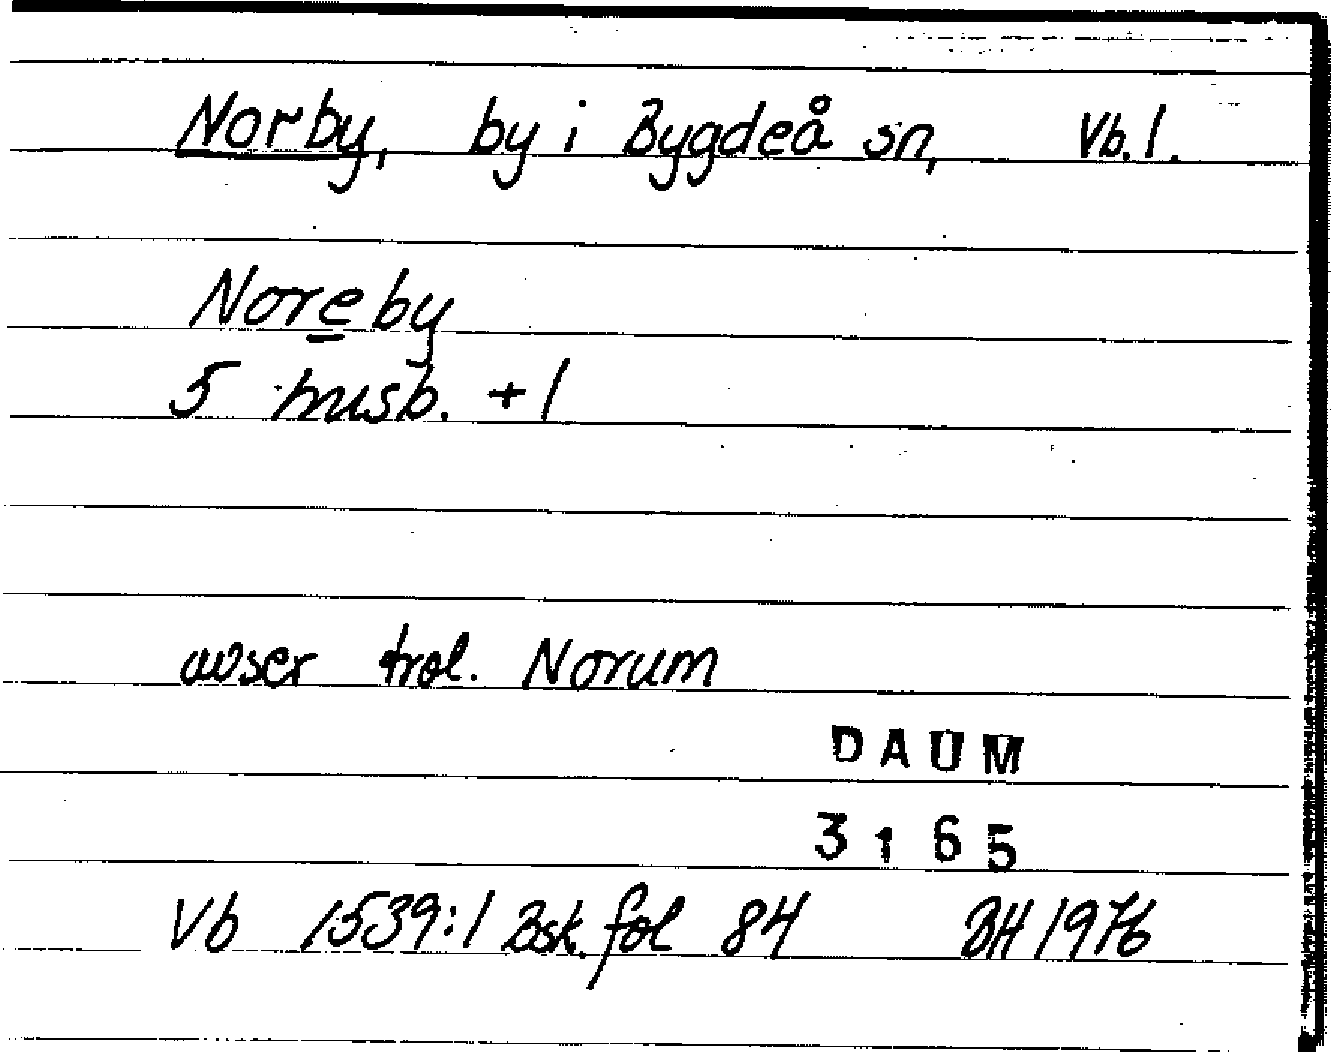 Norby, by i Bygdeå sn, Vb.l.
Noreby
5 husb. + 1
avser trol. Norum
DAUM
3165
Vb 1539:1 Bsk. fol 84 BH 1976